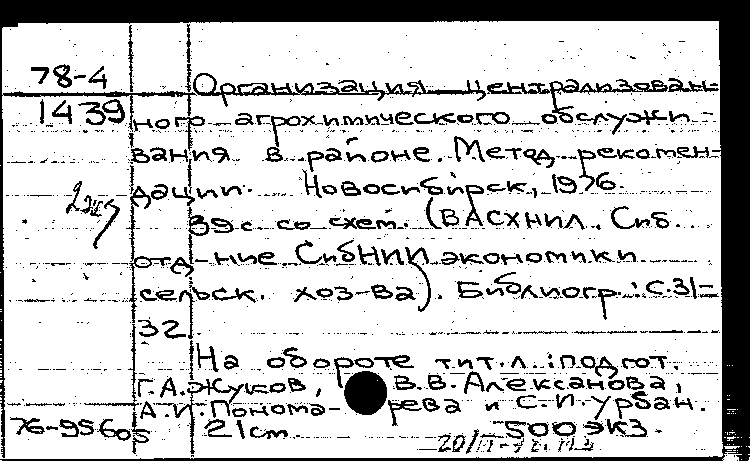 78-4
1439
Организация централизован-
ного агрохимического обслужи-
вания в районе. Метод. рекомен-
дации. Новосибирск, 1976.
39 с со схем. (ВАСХНИЛ. Сиб.
отд-ние СибНИИ экономики
сельск. хоз-ва). Библиогр.: с. 31-
32.
На обороте тит. л.: подгот.
Г.А. Жуков, В.В. Алексанова,
А.И. Понома-рева и С.И. Урбан.
76-95605 21 cm. 500 экз.